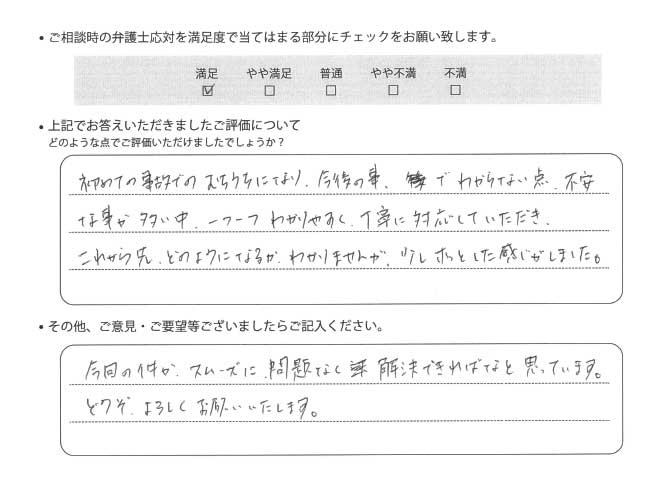 • ご相談時の弁護士応対を満足度で当てはまる部分にチェックをお願い致します。
満足 やや満足 普通 やや不満 不満
☑ □ □ □ □
• 上記でお答えいただきましたご評価について
どのような点でご評価いただけましたでしょうか？
初めての事故でのむちうちになり、今後の事、でわからない点、不安
な事が多い中、一つ一つわかりやすく、丁寧に対応していただき、
これから先、どのようになるか、わかりませんが、少しホッとした感じがしました。
• その他、ご意見・ご要望等ございましたらご記入ください。
今回の件が、スムーズに、問題なく 解決できればなと思っています。
どうぞ、よろしくお願いいたします。